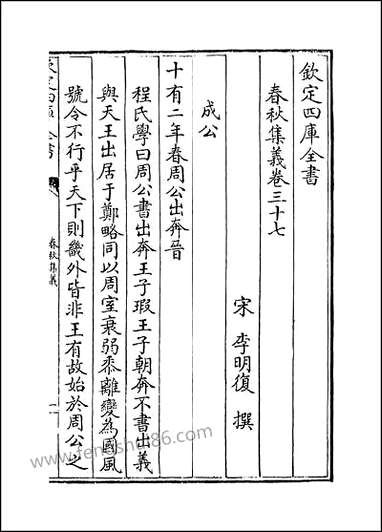 欽定四庫全書
春秋集義卷三十七
宋 李明復 撰
成公
十有二年春周公出奔晉
程氏學曰周公書出奔王子瑕王子朝奔不書出義
與天王出居于鄭略同以周室衰弱黍離變為國風
號令不行乎天下則畿外皆非王有故始於周公之
欽定四庫全書
春秋集義
www.fengshui86.com